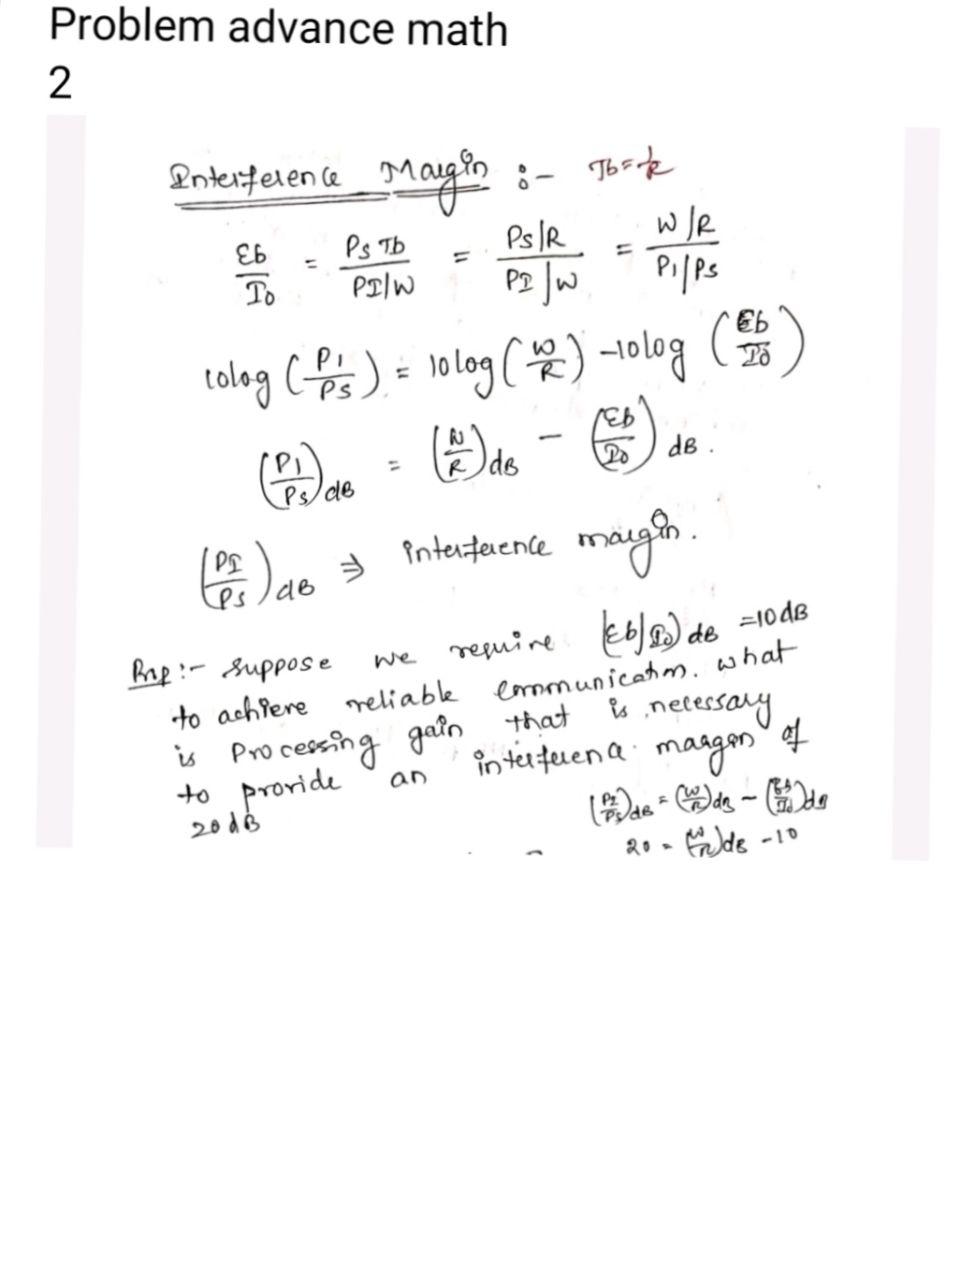 Problem advance math
2
Interference Margin :- Tb = 1/R
Eb/I0 = Ps Tb / PI/W = Ps/R / PI/W = W/R / PI/Ps
10log (PI/Ps) = 10log (W/R) - 10log (Eb/I0)
(PI/Ps)dB = (W/R)dB - (Eb/I0) dB.
(PI/Ps)dB ⇒ interference margin.
Prp :- suppose we require (Eb/I0) dB = 10dB
to achieve reliable communication. what
is Processing gain that is necessary
to provide an interferena margen of
20 dB
(PI/Ps)dB = (W/R)dB - (Eb/I0)dB
20 = (W/R)dB - 10